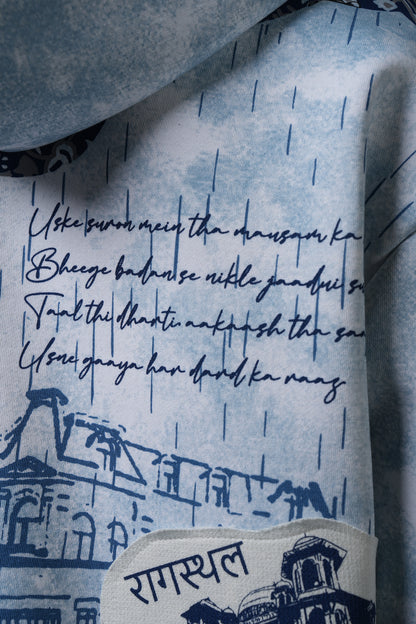 Uske suron mein tha mausam ka
Bheege badan se nikle jaadui
Taal thi dharti, aakaash tha
Usne gaaya har dard ka raag
रागस्थल